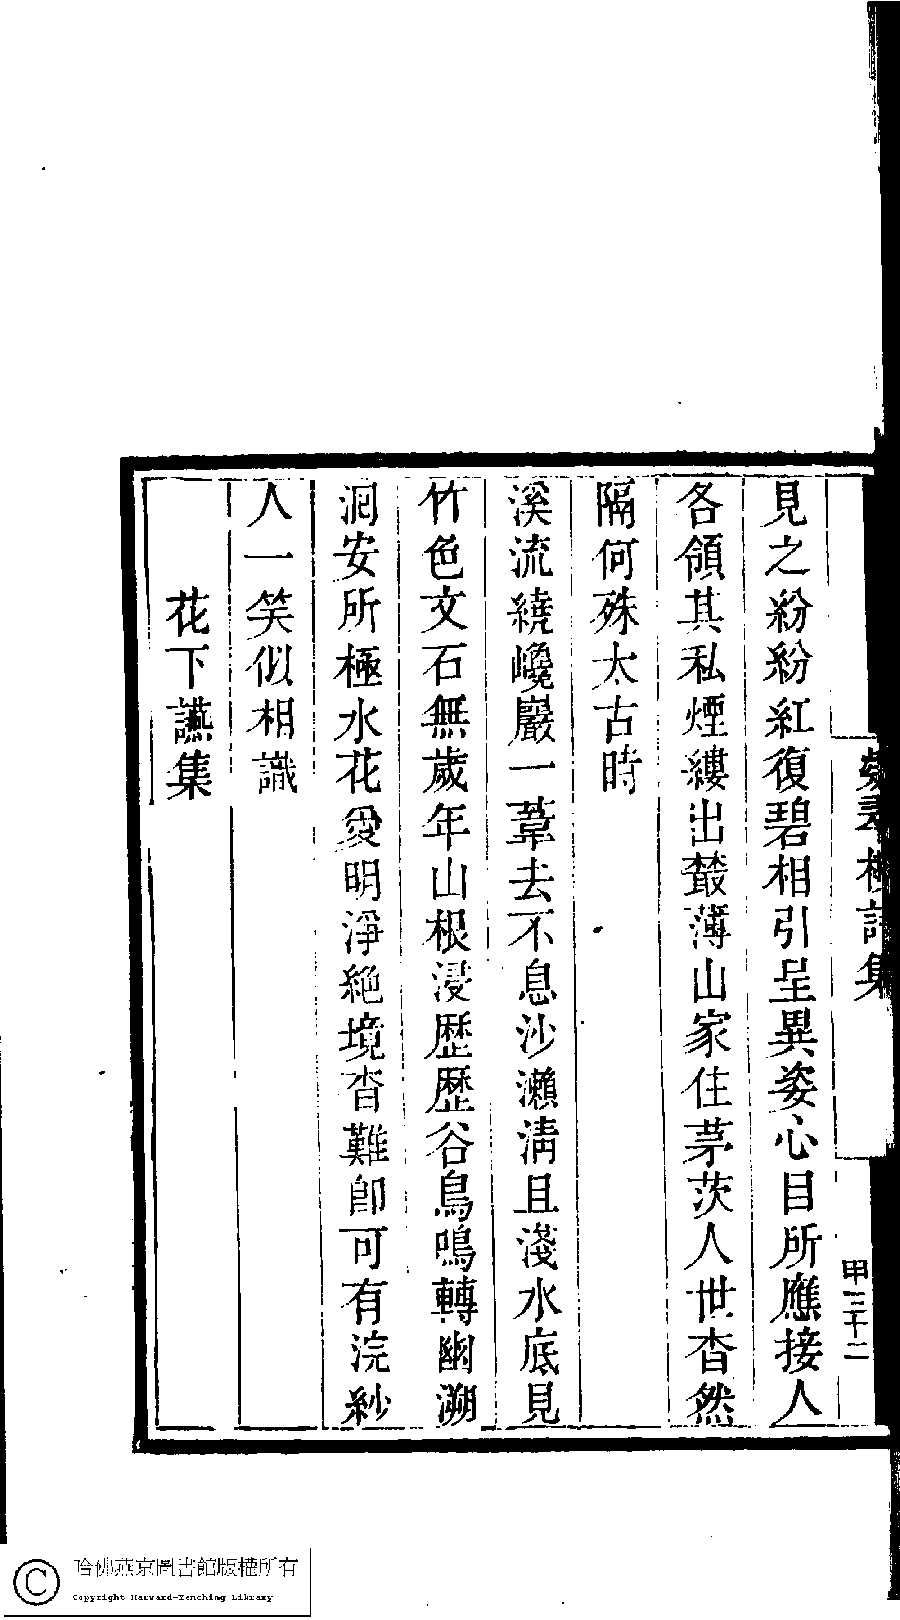 見之紛紛紅復碧相引呈異姿心目所應接人
各領其私煙縷出叢薄山家住茅茨人世杳然
隔何殊太古時
溪流繞巉巖一葦去不息沙瀨淸且淺水底見
竹色文石無歲年山根浸歷歷谷鳥鳴轉幽溯
洄安所極水花愛明淨絶境杳難卽可有浣紗
人一笑似相識
花下讌集
甲三十二
哈佛燕京圖書館版權所有
Copyright Harvard-Yenching Library